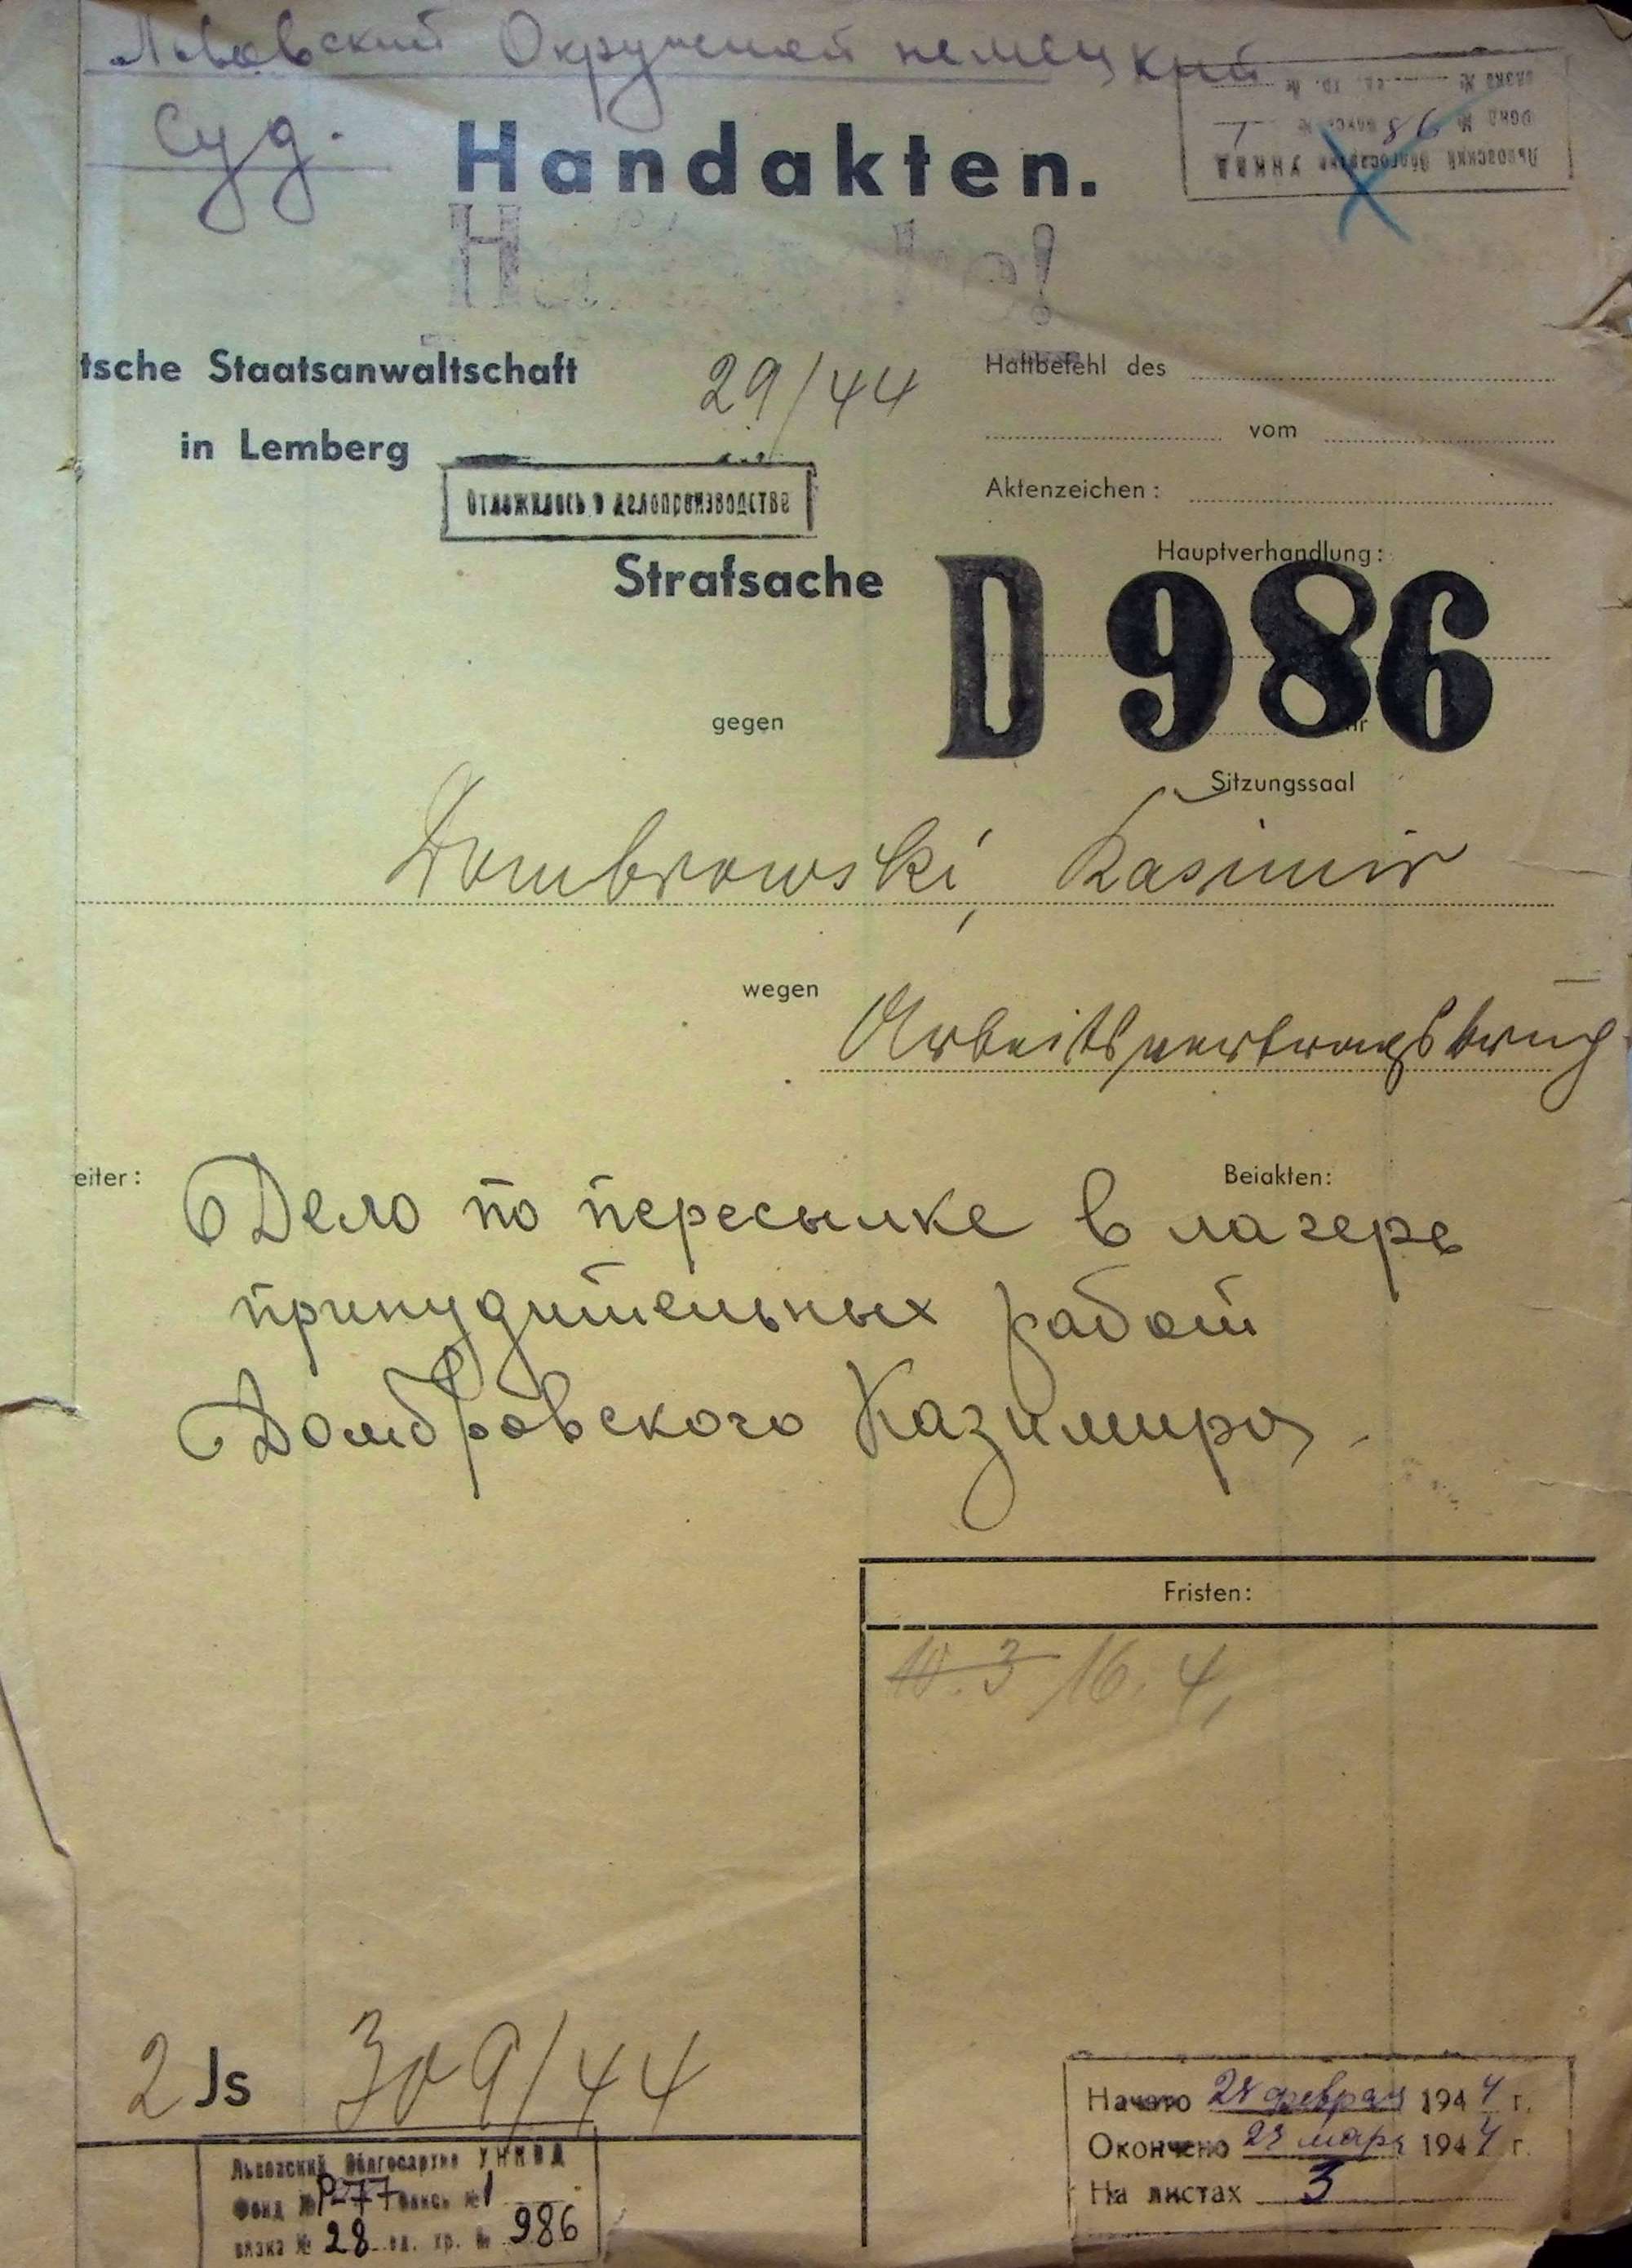 Львовский Окружной немецкий
суд.
Handakten.
Львовский Облгосархив УНКВД
Фонд № 98 опись № 1
вязка № ед. хр. №
tsche Staatsanwaltschaft
29/44
in Lemberg
Отложилось в делопроизводстве
Haftbefehl des
vom
Aktenzeichen:
Hauptverhandlung:
Strafsache
D 986
gegen
Sitzungssaal
Dombrowski, Kasimir
wegen
Arbeitsvertragsbruch
eiter:
Beiakten:
Дело по пересылке в лагерь
принудительных работ
Домбровского Казимира.
Fristen:
10.3 16.4,
2 Js 309/44
Львовский Облгосархив УНКВД
Фонд № Р-77 опись № 1
вязка № 28 ед. хр. № 986
Начато 28 февраля 1944 г.
Окончено 29 марта 1944 г.
На листах 3